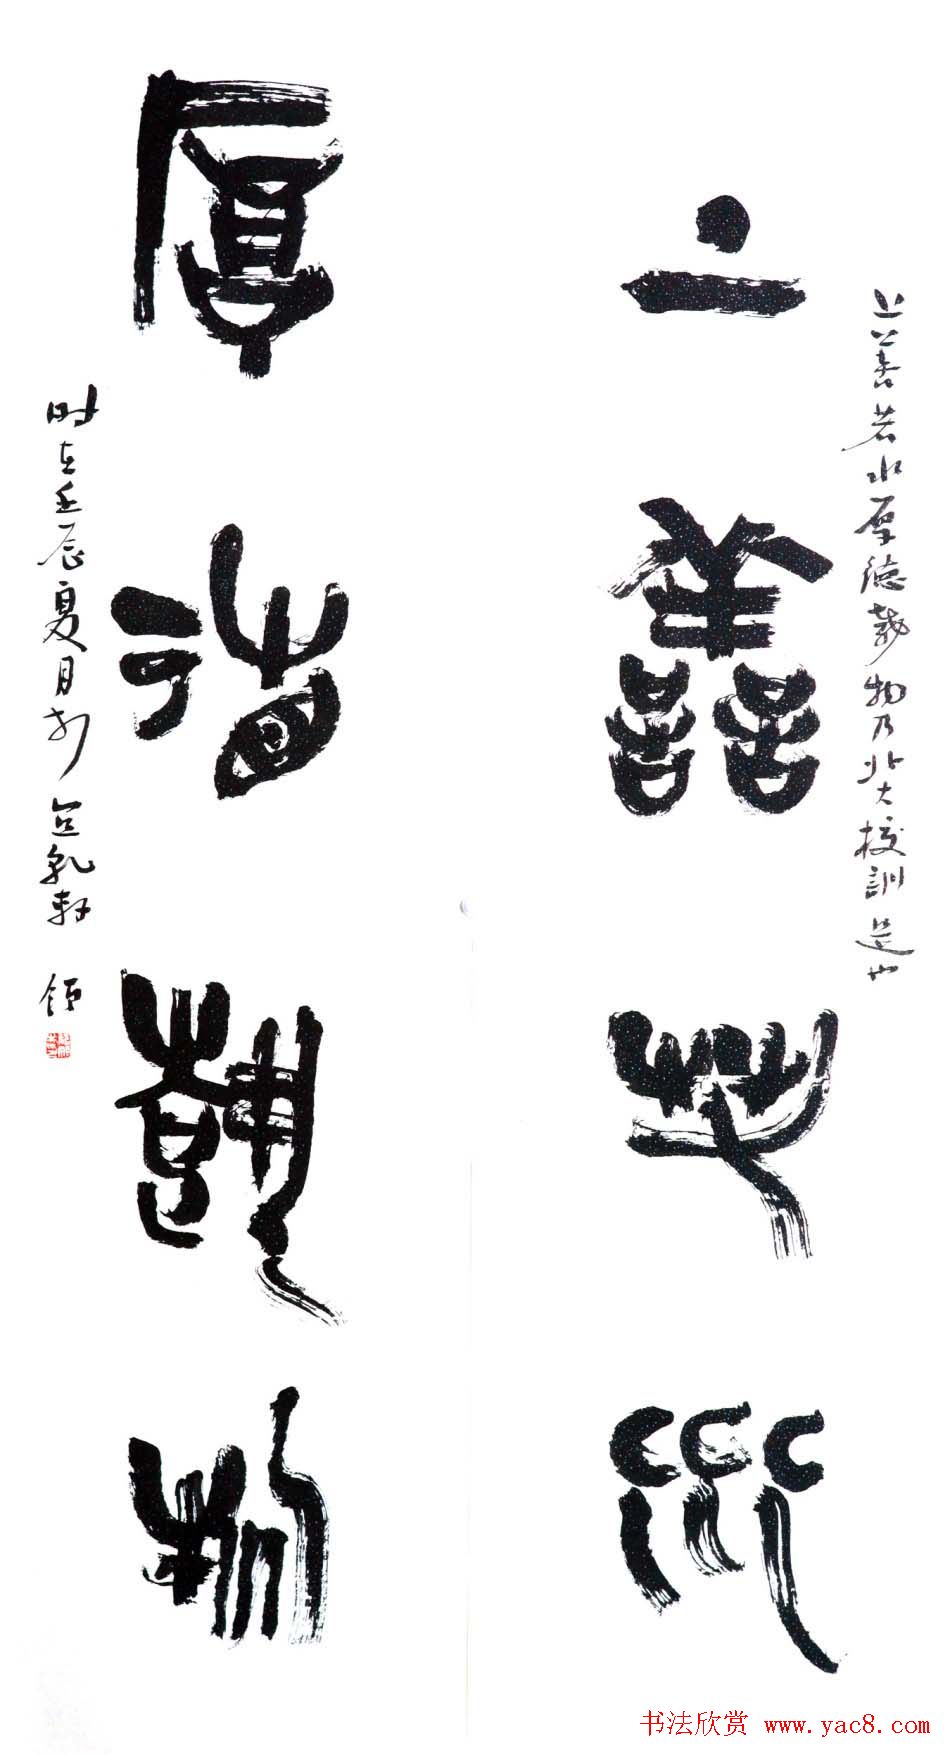 上善若水厚德載物乃北大校訓是也
上善若水
厚德載物
时在壬辰夏月于
书法欣赏 www.yac8.com